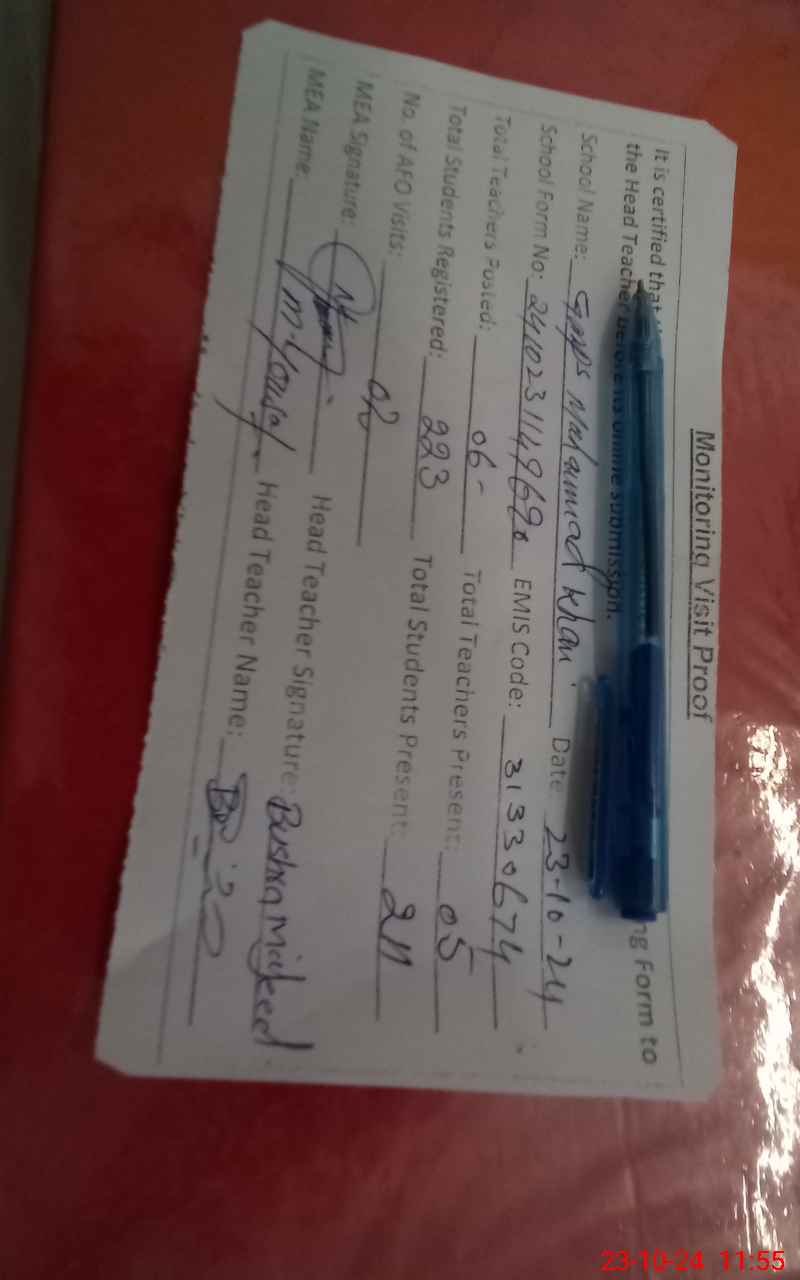 Monitoring Visit Proof
It is certified that ng Form to
the Head Teacher before its online submission.
School Name: GMPS Mohammad Khan Date 23-10-24
School Form No: EMIS Code: 31330674
Total Teachers Posted: 06- Total Teachers Present: 05
Total Students Registered: 223 Total Students Present: 211
No. of AFO Visits: 02
MEA Signature: Head Teacher Signature: Bushra Majeed
MEA Name: M. Yousaf. Head Teacher Name:
23-10-24 11:55